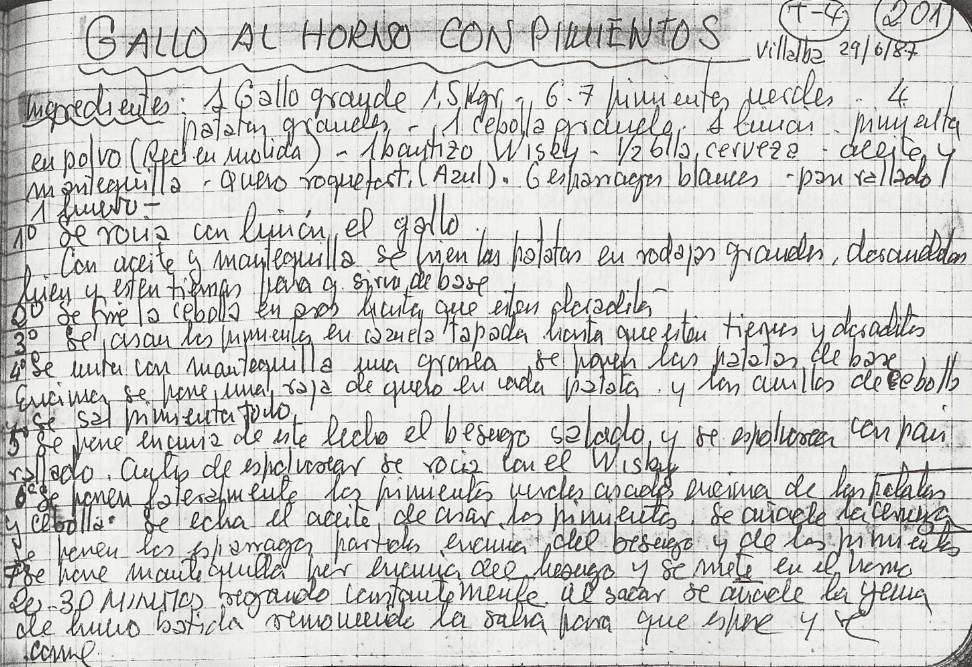 T-4 201
GALLO AL HORNO CON PIMIENTOS
Villalba 29/6/87
Ingredientes: 1 Gallo grande 1,5 kgr - 6-7 pimientos verdes - 4
patatas grandes - 1 cebolla grande, 1 limon - pimienta
en polvo (Recien molida) - 1 Wisky - 1/2 blla cerveza - aceite y
mantequilla - Queso roquefort (Azul). 6 esparragos blancos - pan rallado
1 huevo -
1º Se rocia con limón el gallo.
Con aceite y mantequilla se frien las patatas en rodajas grandes,
bien y esten tiernas para q sirva de base
2º Se frie la cebolla en aros hasta que esten doradita
3º Se asan los pimientos en cazuela tapada hasta que estén tiernos y doraditos
4º Se unta con mantequilla una se ponen las patatas de base
Encima se pone una raja de queso en cada patata y los anillos de cebolla
Se sal pimienta todo
5º Se pone encima de este lecho el besugo salado, y se espolvorea con pan
rallado. Antes de espolvorear se rocia con el Wisky
6º Se ponen lateralmente los pimientos verdes asados encima de las patatas
y cebolla. Se echa el aceite de asar los pimientos. Se añade la cerveza
Se ponen los esparragos partidos encima del besugo y de los pimientos
7º Se pone mantequilla por encima del besugo y se mete en el horno
20-30 MINUTOS regando constantemente al sacar se añade la yema
de huevo batida removiendo la salsa para que espese y se
come.